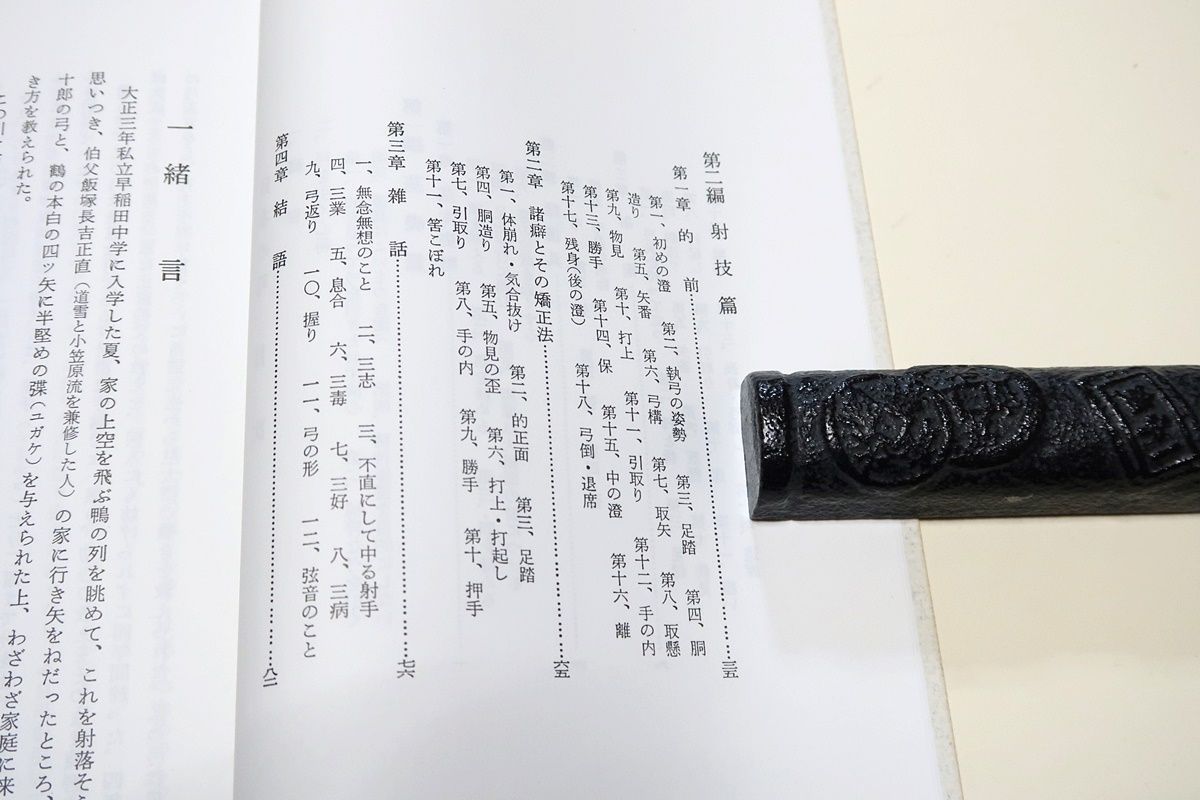 第二編 射技篇
第一章 的前……三五
第一、初めの澄 第二、執弓の姿勢 第三、足踏 第四、胴
造り 第五、矢番 第六、弓構 第七、取矢 第八、取懸
第九、物見 第十、打上 第十一、引取り 第十二、手の内
第十三、勝手 第十四、保 第十五、中の澄 第十六、離
第十七、残身(後の澄) 第十八、弓倒・退席
第二章 諸癖とその矯正法……六五
第一、体崩れ・気合抜け 第二、的正面 第三、足踏
第四、胴造り 第五、物見の歪 第六、打上・打起し
第七、引取り 第八、手の内 第九、勝手 第十、押手
第十一、筈こぼれ
第三章 雑話……七六
一、無念無想のこと 二、三志 三、不直にして中る射手
四、三業 五、息合 六、三毒 七、三好 八、三病
九、弓返り 一〇、握り 一一、弓の形 一二、弦音のこと
第四章 結語……八二
一 緒言
大正三年私立早稲田中学に入学した夏、家の上空を飛ぶ鴨の列を眺めて、これを射落そ
思いつき、伯父飯塚長吉正直(道雪と小笠原流を兼修した人)の家に行き矢をねだったところ、
十郎の弓と、鶴の本白の四ッ矢に半堅めの弽(ユガケ)を与えられた上、わざわざ家庭に来
き方を教えられた。